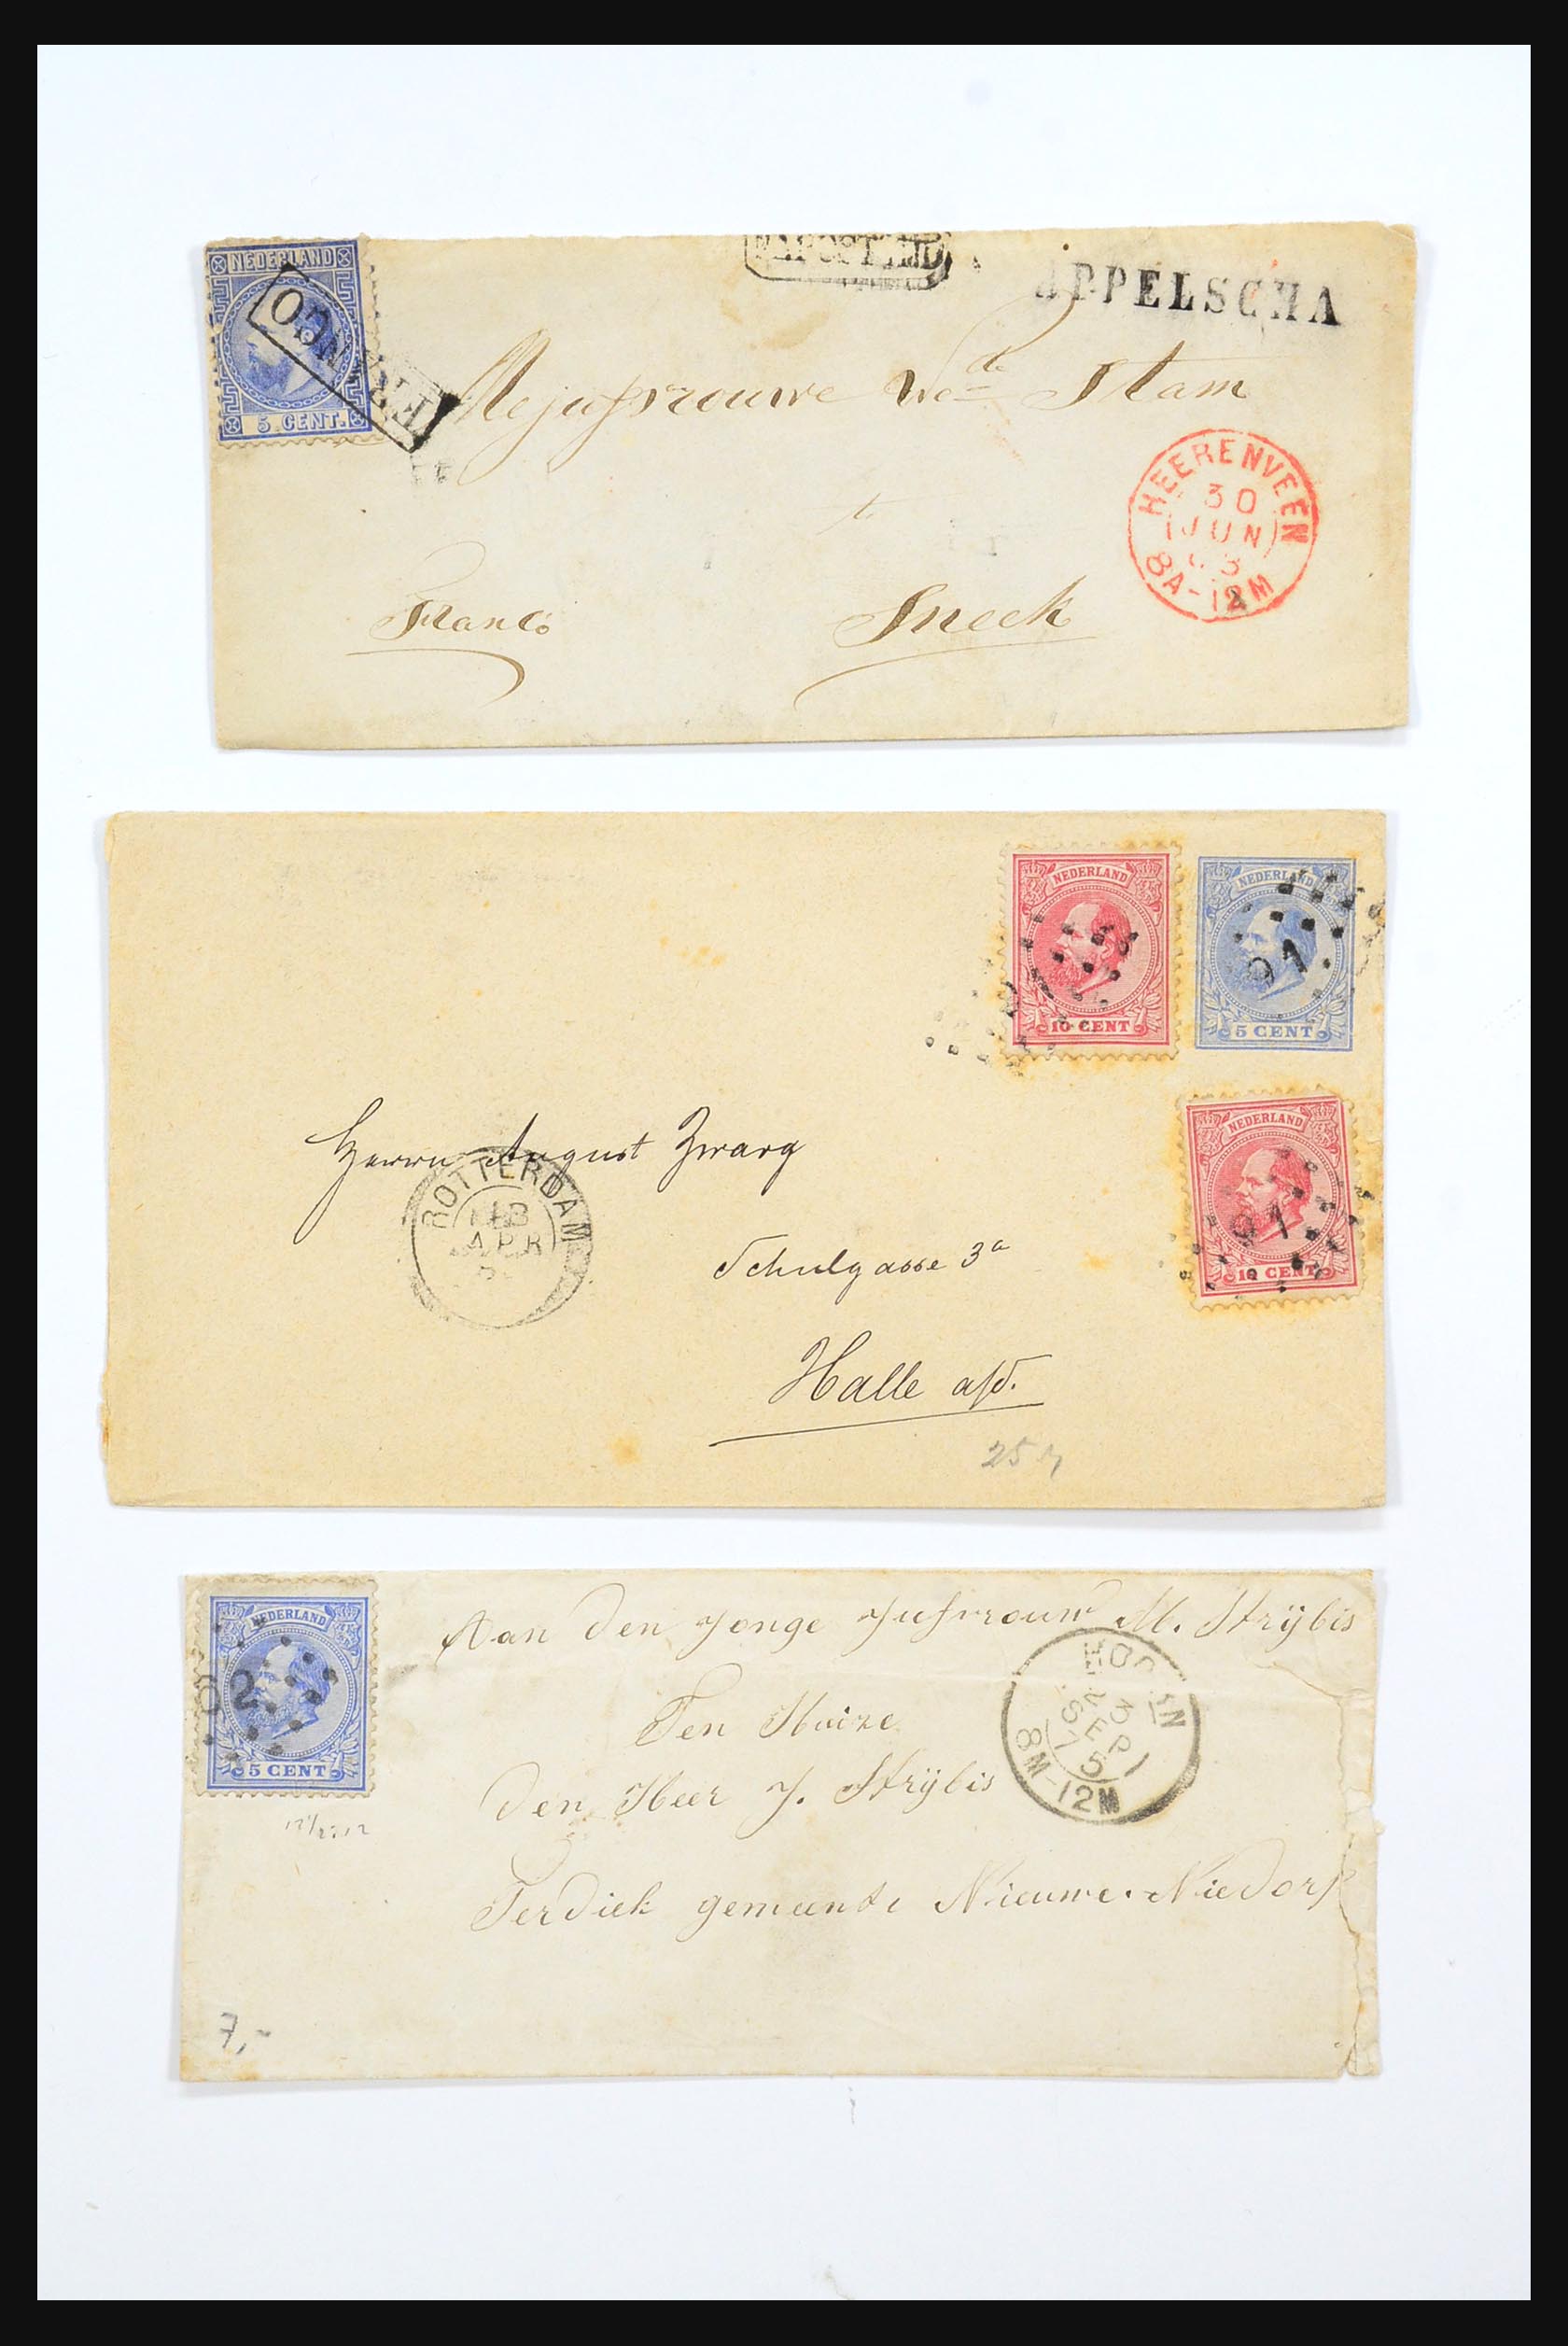 NEDERLAND
5 CENT.
FRANCO
NA POSTTIJD
APPELSCHA
Mejufvrouwe Wede Stam
te
Sneek
Franco
HEERENVEEN
30
JUN
8A-12M
NEDERLAND
10 CENT
NEDERLAND
5 CENT
91
NEDERLAND
10 CENT
91
Herrn August Zwarg
ROTTERDAM
APR
Schulgasse 3a
Halle a/S.
25
NEDERLAND
5 CENT
52
Aan den Jonge Jufvrouw M. Strijbis
Ten Huize
den Heer J. Strijbis
Terdiek gemeente Nieuwe-Niedorp
HOORN
3
SEP
75
8M-12M
7,-